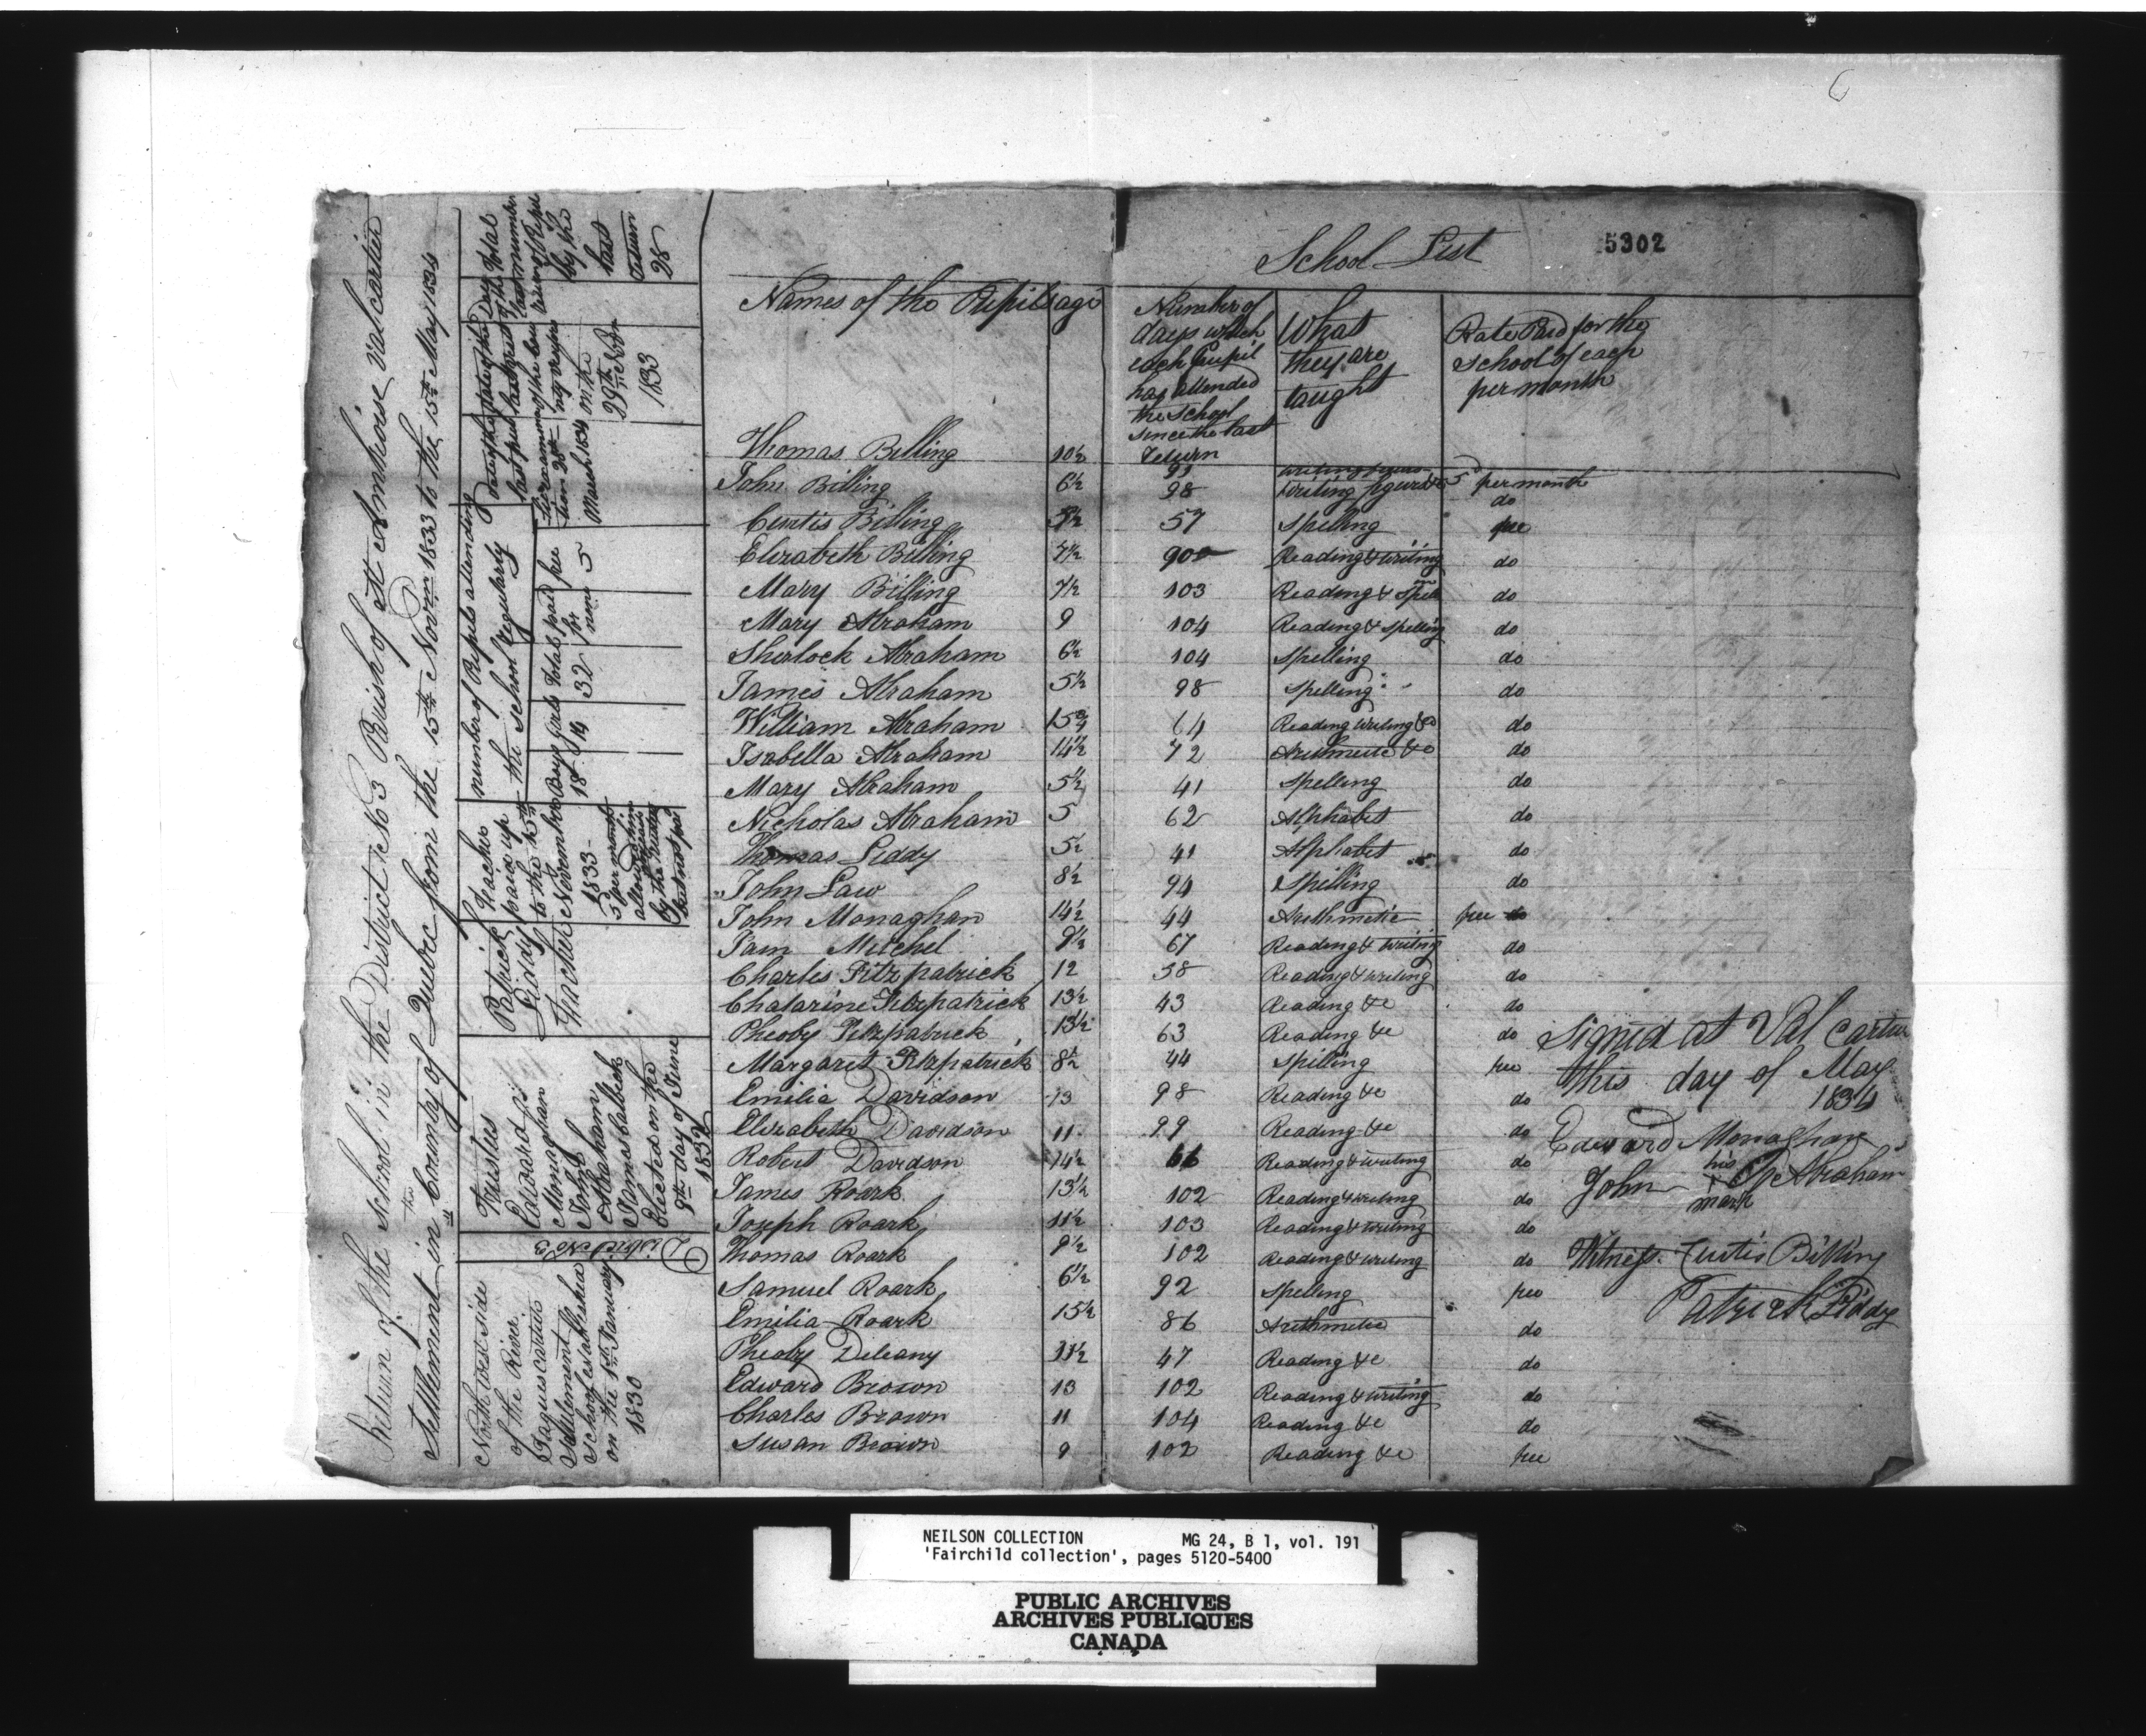 6
Return of the School in the District No 3 Parish of St Ambroise Valcartier
Settlement in the County of Quebec from the 15th Novrm 1833 to the 15th May 1834
North West Side
of the River
Jaques cartier
Settlement
School established
on the 1st January
1830
District No 3
Trustees
Edward
Monaghan
John
Abraham
James Calbeck
Elected on the
9th day of June
1832
Patrick
Liddy
Teacher
Teacher
paid up
to the 15th
November
1833
5 per month
allowed him
by the
number of Pupils attending
the School Regularly
Boys Girls Total paid for free
18 14 32 5
date of the
last public
examination 28th
March 1834
date of the
last visit
on the
29th Nov
1833
Total
number
of Pupils
by the
last
return
28
School List
5302
Names of the Pupils age
Number of days which each Pupil has attended the School since the last Return
What they are taught
Rate Paid for the School of each per month
Thomas Billing 10½ 91 5 per month
John Billing 6½ 98 writing figures &c do
Curtis Billing 57 Spelling free
Elizabeth Billing 7½ 90 Reading & writing do
Mary Billing 7½ 103 Reading & Spell do
Mary Abraham 9 104 Reading & Spelling do
Sherlock Abraham 6½ 104 Spelling do
James Abraham 5½ 98 Spelling do
William Abraham 15¾ 64 Reading writing &c do
Isabella Abraham 14½ 72 Arithmetic &c do
Mary Abraham 5½ 41 Spelling do
Nicholas Abraham 5 62 Alphabet do
Thomas Liddy 5½ 41 Alphabet do
John Law 8½ 94 Spelling do
John Monaghan 14½ 44 Arithmetic free
Pam Mitchel 9½ 67 Reading & writing do
Charles Fitzpatrick 12 38 Reading & writing do
Chatarine Fitzpatrick 13½ 43 Reading &c do
Pheoby Fitzpatrick 13½ 63 Reading &c do
Margaret Fitzpatrick 8½ 44 Spelling free
Emilia Davidson 13 98 Reading &c do
Elizabeth Davidson 11 99 Reading &c do
Robert Davidson 14½ 66 Reading & writing do
James Roark 13½ 102 Reading & writing do
Joseph Roark 11½ 103 Reading & writing do
Thomas Roark 9½ 102 Reading & writing do
Samuel Roark 6½ 92 Spelling free
Emilia Roark 15½ 86 Arithmetic do
Pheoby Deleany 11½ 47 Reading &c do
Edward Brown 13 102 Reading & writing do
Charles Brown 11 104 Reading &c do
Susan Brown 9 102 Reading &c free
Signed at Val Cartier
this day of May
1834
Edward Monaghan
John his mark Abraham
Witness Curtis Billing
Patrick Liddy
NEILSON COLLECTION MG 24, B 1, vol. 191
'Fairchild collection', pages 5120-5400
PUBLIC ARCHIVES
ARCHIVES PUBLIQUES
CANADA